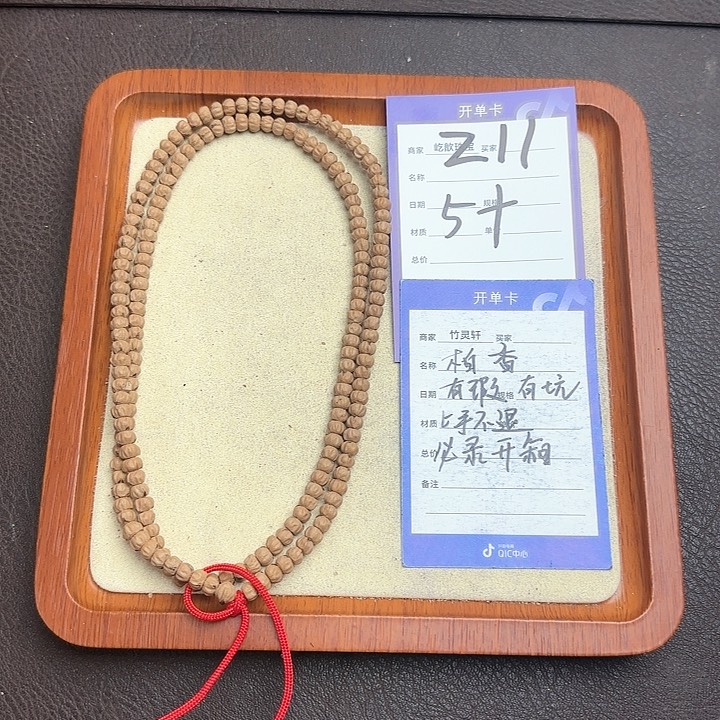 开单卡
商家 屹歆珠宝 买家
Z11
名称
日期 规格
5十
材质 单价
总价
开单卡
商家 竹灵轩 买家
名称 柏香
日期 有瑕 规格 有坑
材质 上手不退
总价 必录开箱
备注
抖音电商
QIC中心